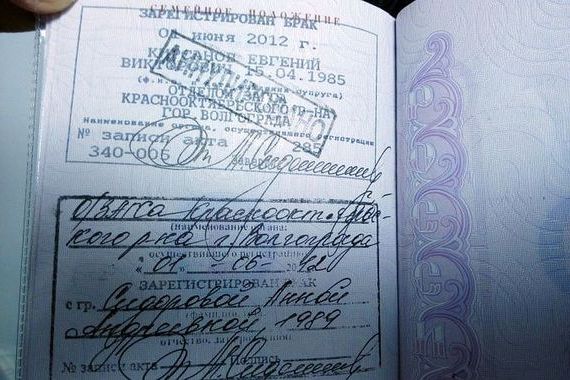 СЕМЕЙНОЕ ПОЛОЖЕНИЕ
ЗАРЕГИСТРИРОВАН БРАК
01 июня 2012 г.
ЕВГЕНИЙ
15.04.1985
супруга)
ОТДЕЛОМ
КРАСНООКТЯБРЬСКОГО Р-НА
ГОР. ВОЛГОГРАДА
Наименование органа, осуществившего регистрацию
№ записи акта 285
340-006
ОЗАГСа Краснооктябрьс-
кого р-на г. Волгограда
(наименование органа,
осуществившего регистрацию)
"01" 06 2012
ЗАРЕГИСТРИРОВАН БРАК
с гр. Сидоровой Анной
Андреевной, 1989
отчество, дата рождения)
№ записи акта Подпись